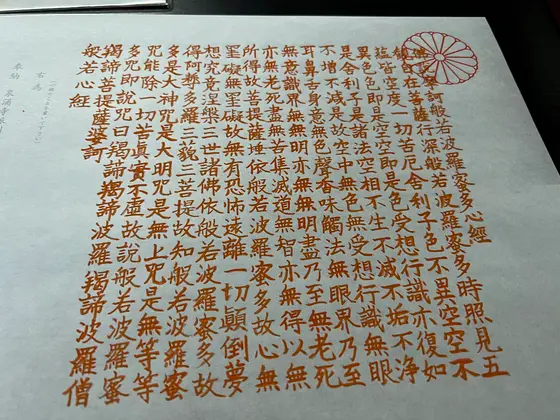 摩訶般若波羅蜜多心經
觀自在菩薩行深般若波羅蜜多時照見五
蘊皆空度一切苦厄舍利子色不異空空不
異色色即是空空即是色受想行識亦復如
是舍利子是諸法空相不生不滅不垢不淨
不增不減是故空中無色無受想行識無眼
耳鼻舌身意無色聲香味觸法無眼界乃至
無意識界無無明亦無無明盡乃至無老死
亦無老死盡無苦集滅道無智亦無得以無
所得故菩提薩埵依般若波羅蜜多故心無
罣礙無罣礙故無有恐怖遠離一切顛倒夢
想究竟涅槃三世諸佛依般若波羅蜜多故
得阿耨多羅三藐三菩提故知般若波羅蜜
多是大神咒是大明咒是無上咒是無等等
咒能除一切苦真實不虛故說般若波羅蜜
多咒即說咒曰羯諦羯諦波羅羯諦波羅僧
羯諦菩提薩婆訶
般若心經
右為
奉納 泉涌寺